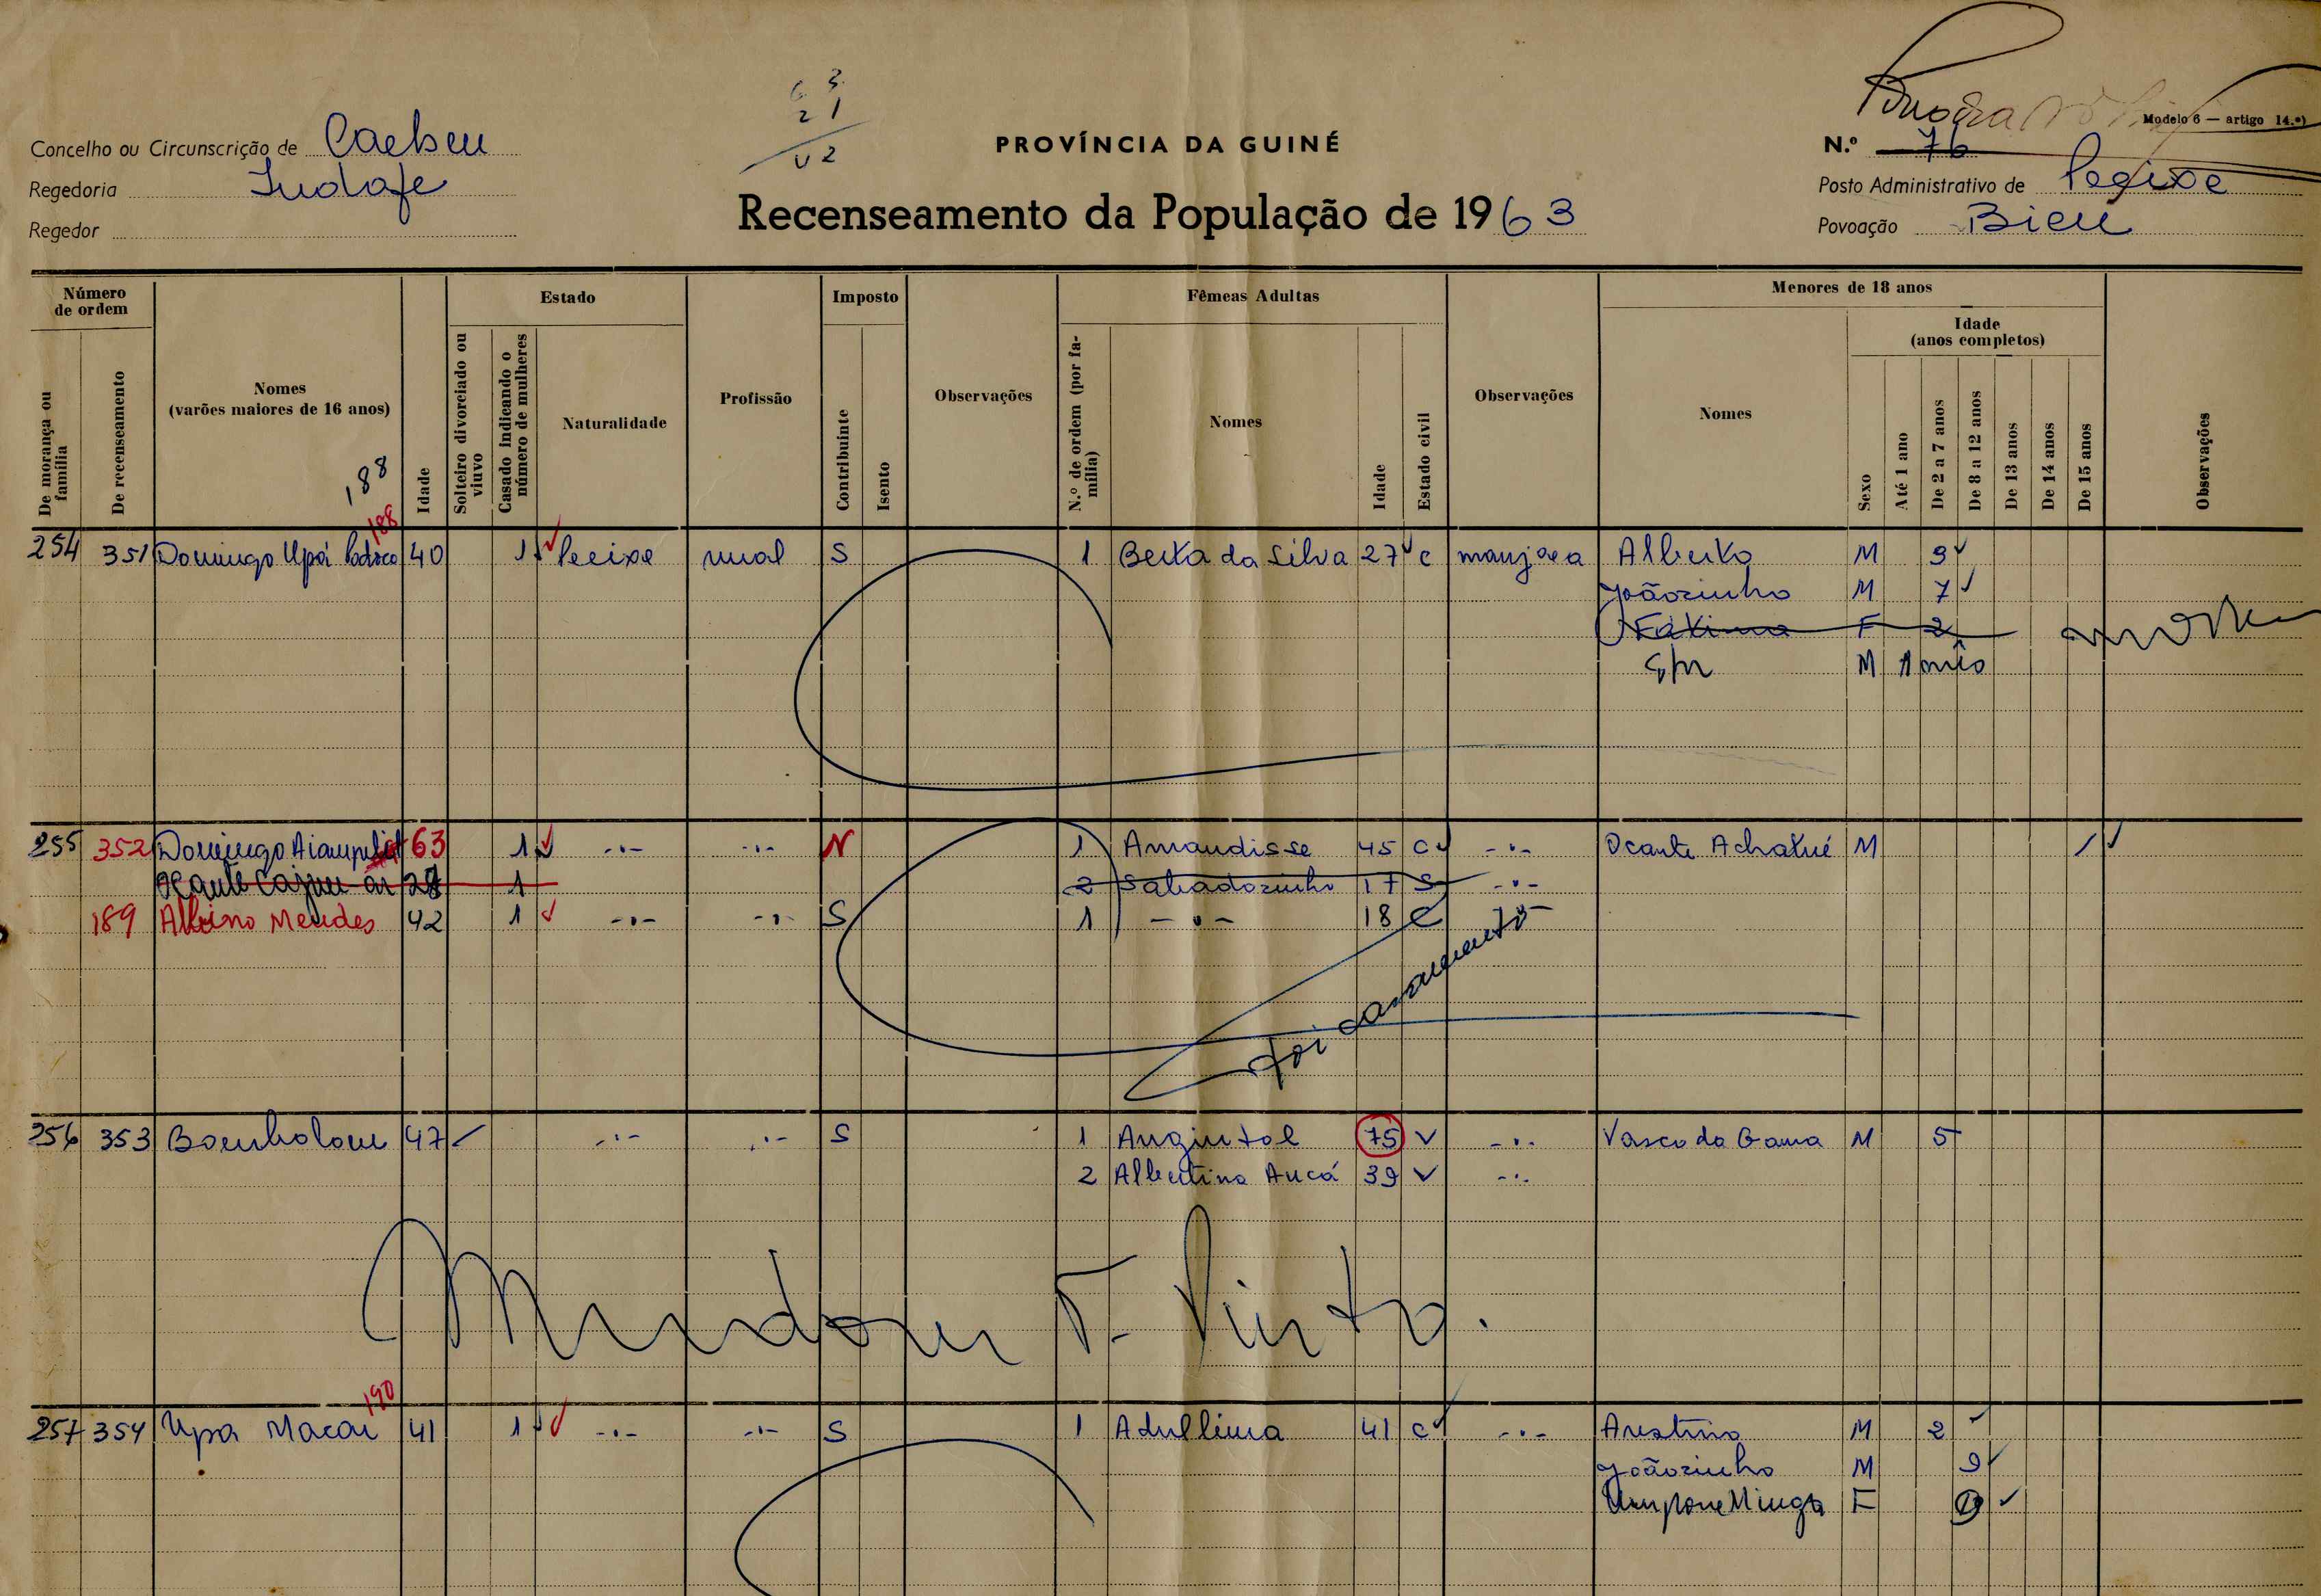 3
21
Modelo 6 — artigo 14.º)
Concelho ou Circunscrição de
PROVÍNCIA DA GUINÉ
N.º 76
Regedoria
Posto Administrativo de Pecixe
Regedor
Recenseamento da População de 1963
Povoação Bieu
Número de ordem
Nomes
(varões maiores de 16 anos)
Idade
Estado
Profissão
Imposto
Observações
Fêmeas Adultas
Observações
Menores de 18 anos
Observações
De morança ou família
De recenseamento
Solteiro divorciado ou viuvo
Casado indicando o número de mulheres
Naturalidade
Contribuinte
Isento
N.º de ordem (por família)
Nomes
Idade
Estado civil
Nomes
Sexo
Idade
(anos completos)
Até 1 ano
De 2 a 7 anos
De 8 a 12 anos
De 13 anos
De 14 anos
De 15 anos
188
188
254 351 Domingo Upá 40 1 Pecixe rural S 1 Berta da Silva 27 C manjaca Alberto M 9
Joãozinho M 7
Fátima F 2
S/n M 1 mês
255 352 Domingo 63 1 -·- -·- N 1 Amandisse 45 C -·- Ocante Achatué M
Ocante 28 1 2 Sabadozinho 17 S -·-
189 Albino Mendes 42 1 -·- -·- S 1 -·- 18 C
Foi casamento
256 353 Boenholom 47 -·- -·- S 1 Angintol 75 V -·- Vasco da Gama M 5
2 Albertina Aucá 39 V -·-
190
257 354 Upa Macau 41 1 -·- -·- S 1 Adullima 41 C -·- M 2
Joãozinho M 9
F